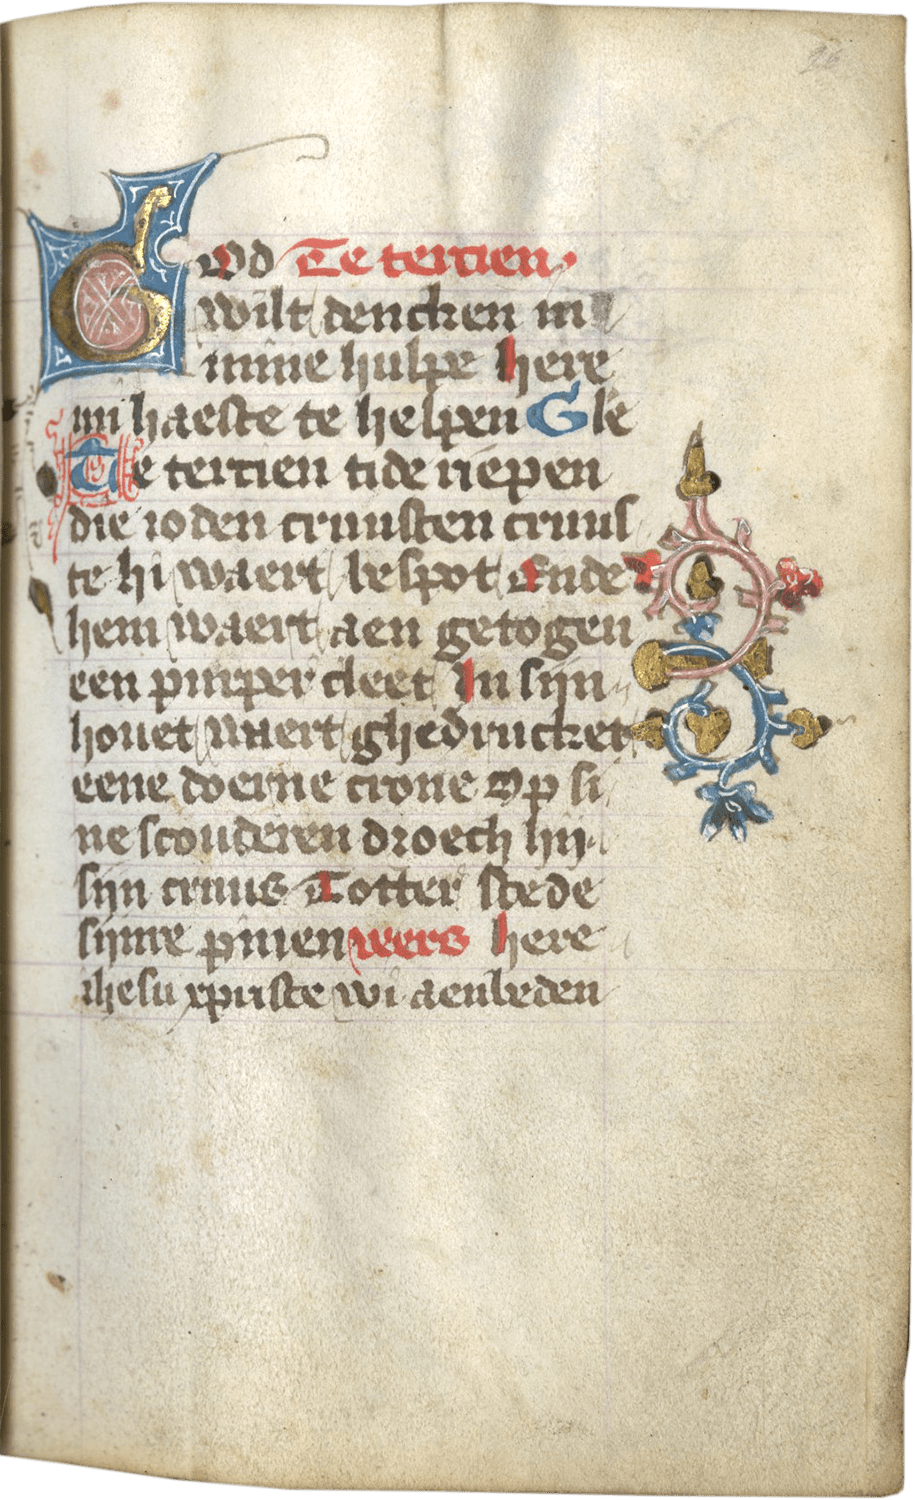 26
God Te tercien.
wilt dencken in
mine hulpe here
mi haeste te helpen Gle
Te tercien tide riepen
die ioden cruusten cruus
te hi waert bespot Ende
hem waert aen getogen
een purper cleet In sijn
houet waert ghedrucket
eene doerne crone Op si
ne scouderen droech hij
sijn cruus Totter stede
sijnre pinien vers here
ihesu xpriste wi aenbeden